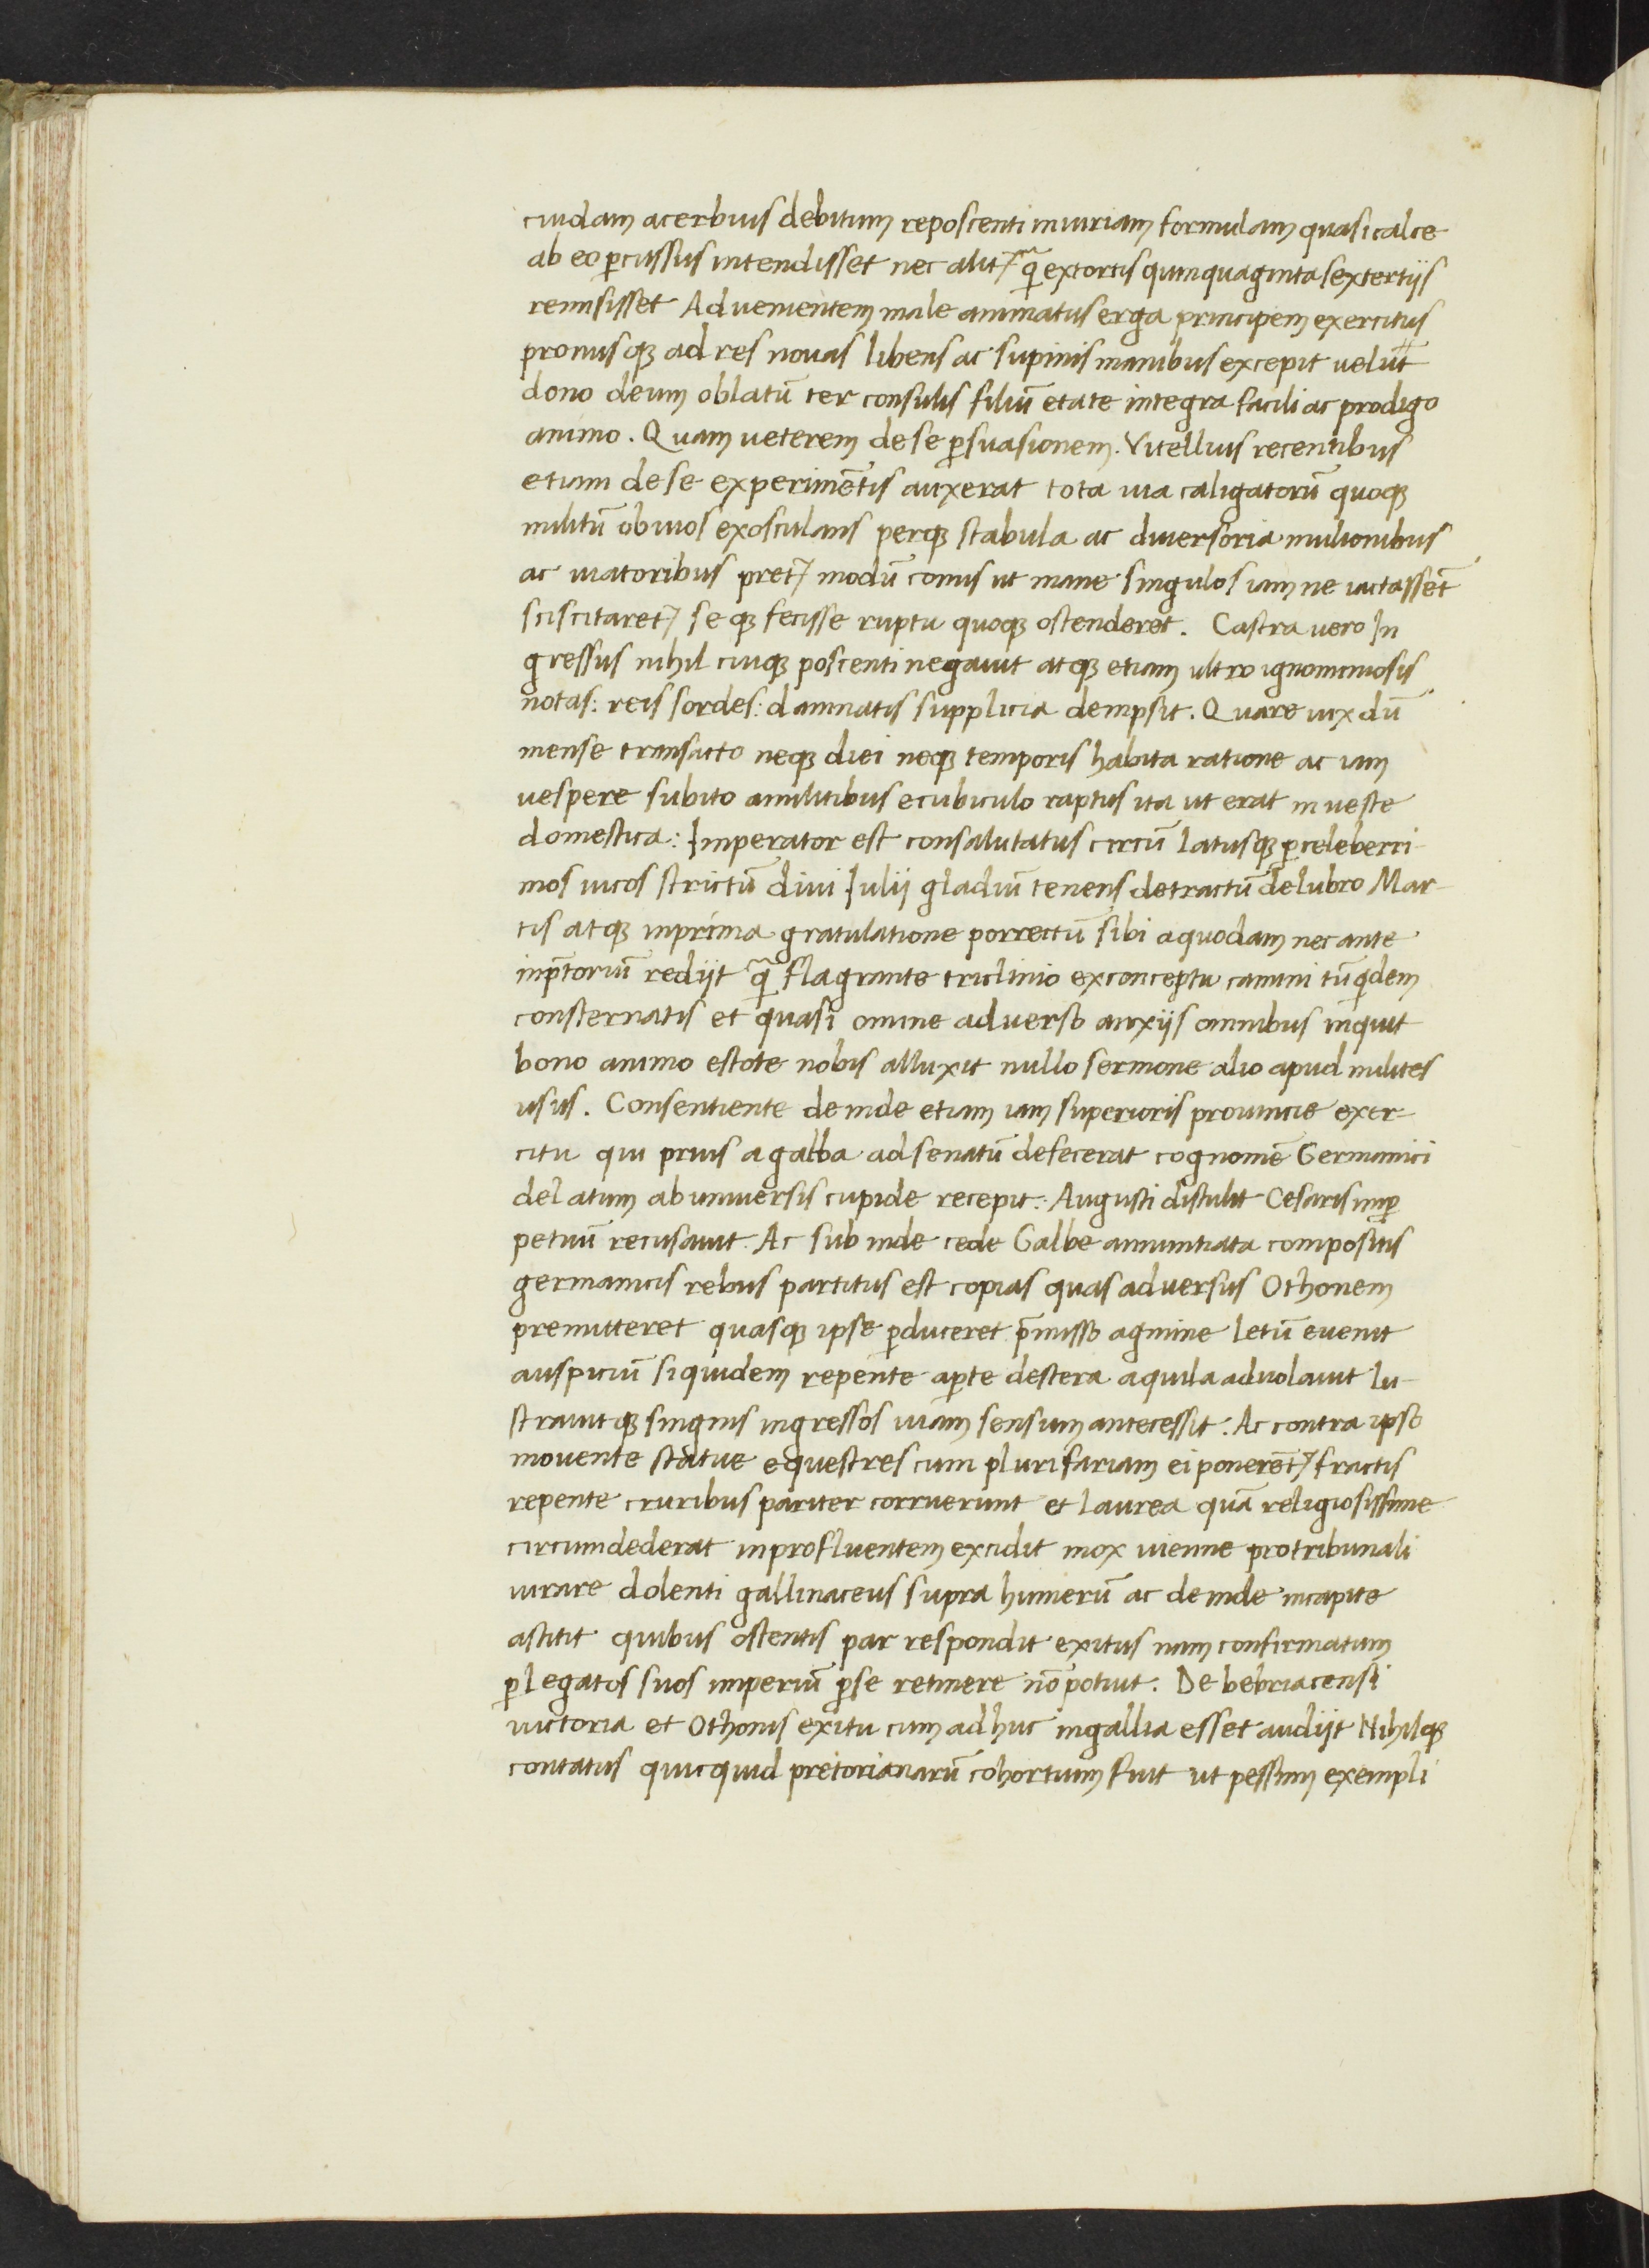 cuidam acerbius debitum reposcenti iniuriam formulam quasi calce
ab eo ꝑcussus intendisset nec alit᷑ qᷓ extortis quinquaginta sextertijs
remisisset Aduenientem male animatus erga principem exercitus
pronusqꝫ ad res nouas libens ac supinis manibus excepit uelut
dono deum oblatū ter consulis filiū etate integra facili ac prodigo
animo. Quam ueterem de se ꝑsuasionem. Vitellius recentibus
etiam de se experimētis auxerat tota uia caligatorū quoqꝫ
militū obuios exosculans perqꝫ stabula ac diuersoria mulionibus
ac uiatoribus pret᷑ modū comis ut mane singulos iam ne iactassēt
sciscitaret᷑ seqꝫ fecisse ruptu quoqꝫ ostenderet. Castra uero In
gressus nihil cuiqꝫ poscenti negauit atqꝫ etiam ultro ignominiosis
notas: reis sordes: damnatis supplicia dempsit. Quare uix dū
mense transacto neqꝫ diei neqꝫ temporis habita ratione ac iam
uespere subito amilitibus ecubiculo raptus ita ut erat in ueste
domestica: Imperator est consalutatus circū latusqꝫ ꝑ celeberri-
mos uicos strictū diui Iulij gladiū tenens detractū delubro Mar-
tis atqꝫ inprima gratulatione porrectū sibi aquodam nec ante
inp̄toriū redijt qᷓ flagrante triclinio exconceptu camini tū qͥdem
consternatis et quasi omine aduerso anxijs omnibus inquit
bono animo estote nobis alluxit nullo sermone alio apud milites
usus. Consentiente deinde etiam iam superioris prouincie exer-
citu qui prius agalba ad senatū defecerat cognomē Germanici
delatum ab uniuersis cupide recepit: Augusti distulit Cesaris inꝑ
petuū recusauit. Ac subinde cede Galbe annuntiata compositis
germanicis rebus partitus est copias quas aduersus Othonem
premitteret quasqꝫ ipse ꝑduceret p̄misso agmine letū euenit
auspiciū siquidem repente aꝑte destera aquila aduolauit lu-
strauitqꝫ singnis ingressos uiam sensim antecessit: Ac contra ipso
mouente statue equestres cum plurifariam ei ponerēt᷑ fractis
repente cruribus pariter corruerunt et laurea quā religiosissime
circumdederat inprofluentem excidit mox uienne protribunali
iurare dolenti gallinaceus supra humerū ac deinde incapite
astitit quibus ostentis par respondit exitus nam confirmatum
ꝑ legatos suos imperiū ꝑse retinere nō potuit. De bebriacensi
uictoria et Othonis exitu cum adhuc ingallia esset audijt Nihilqꝫ
contatus quicquid pretorianarū cohortium fuit ut pessimi exempli